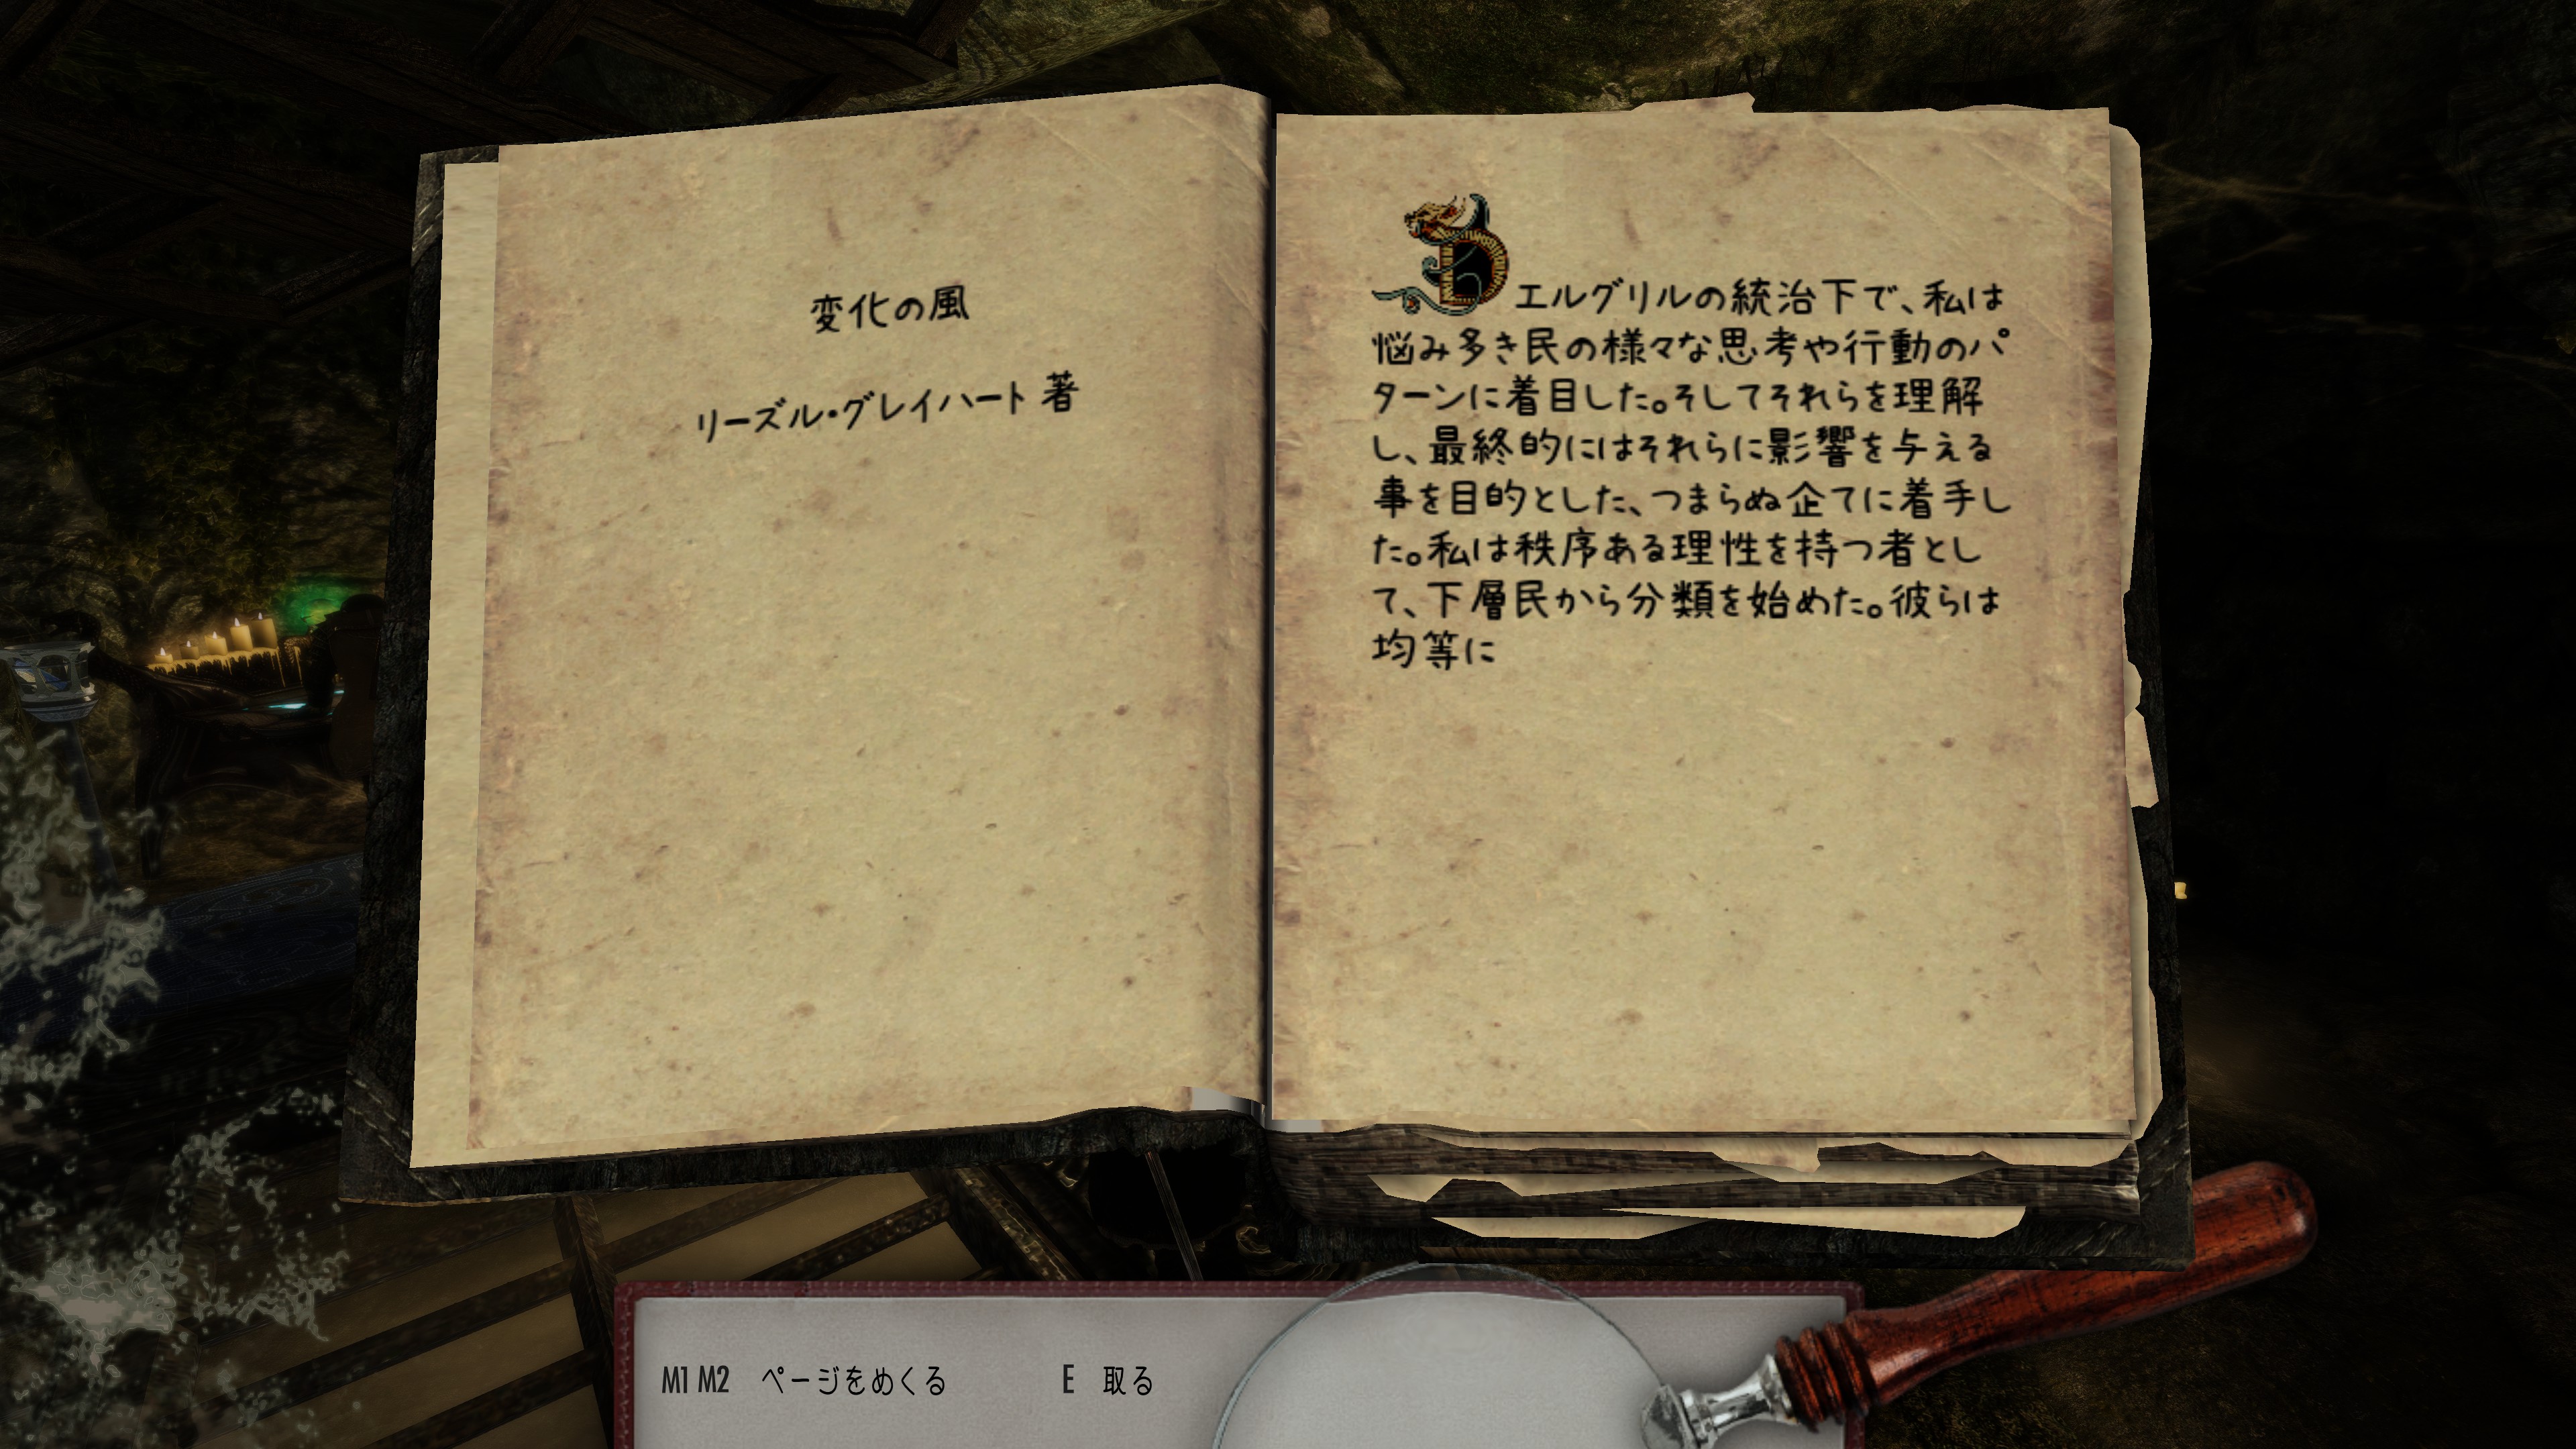 変化の風
リーズル・グレイハート 著
エルグリルの統治下で、私は
悩み多き民の様々な思考や行動のパ
ターンに着目した。そしてそれらを理解
し、最終的にはそれらに影響を与える
事を目的とした、つまらぬ企てに着手し
た。私は秩序ある理性を持つ者とし
て、下層民から分類を始めた。彼らは
均等に
M1 M2 ページをめくる E 取る